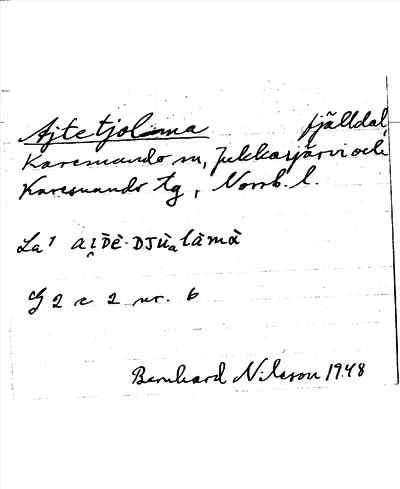 Ajtetjolma fjälldal,
Karesuando sn, Jukkasjärvi och
Karesuando tg, Norrb. l.
La¹
G 2 c 2 nr. 6
Bernhard Nilsson 1948